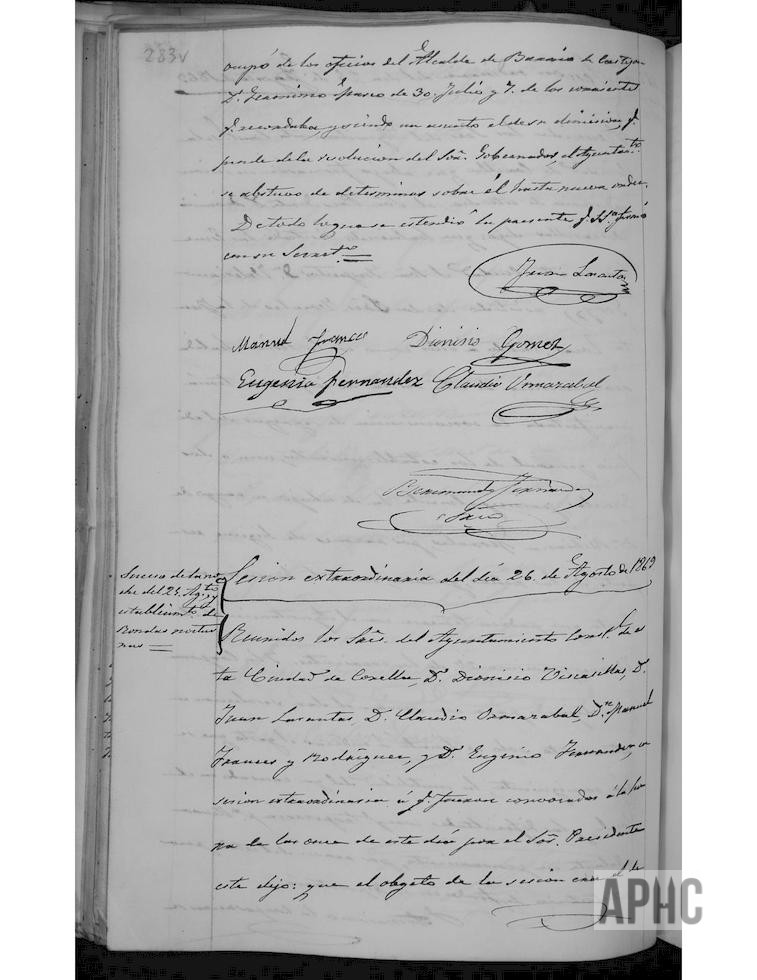 283v
ocupó de los oficios del Alcalde de Barrio de Castejon
D. Geronimo Pasco de 30. Julio y 7. de los corrientes
q. recordaba, y siendo un asunto el de su dimision, q.
pende de la resolucion del Sor. Gobernador, el Ayuntamto.
se abstuvo de determinar sobre él hasta nueva orden.
De todo lo que se estendió la presente q. S. Sa. firmó
con su Secreto.
Juan Lacanta
Manuel Frances Dionisio Gomez
Eugenio Fernandez Claudio Ormazabal
Fernandez
Srio
Suceso de la no
che del 25. Agto. y
establecimto. de
Rondas noctur
nas
Sesion extraordinaria del dia 26. de Agosto de 1869
Reunidos los Sres. del Ayuntamiento Constl. de es
ta Ciudad de Corella, D. Dionisio Viscasillas, D.
Juan Lacantas D. Claudio Ormazabal, Dn. Manuel
Frances y Rodriguez, y D. Eugenio Fernandez, en
sesion extraordinaria á q. fueron convocados á la ho
ra de las once de este dia por el Sor. Presidente
este dijo: que el obgeto de la sesion era el de
APHC